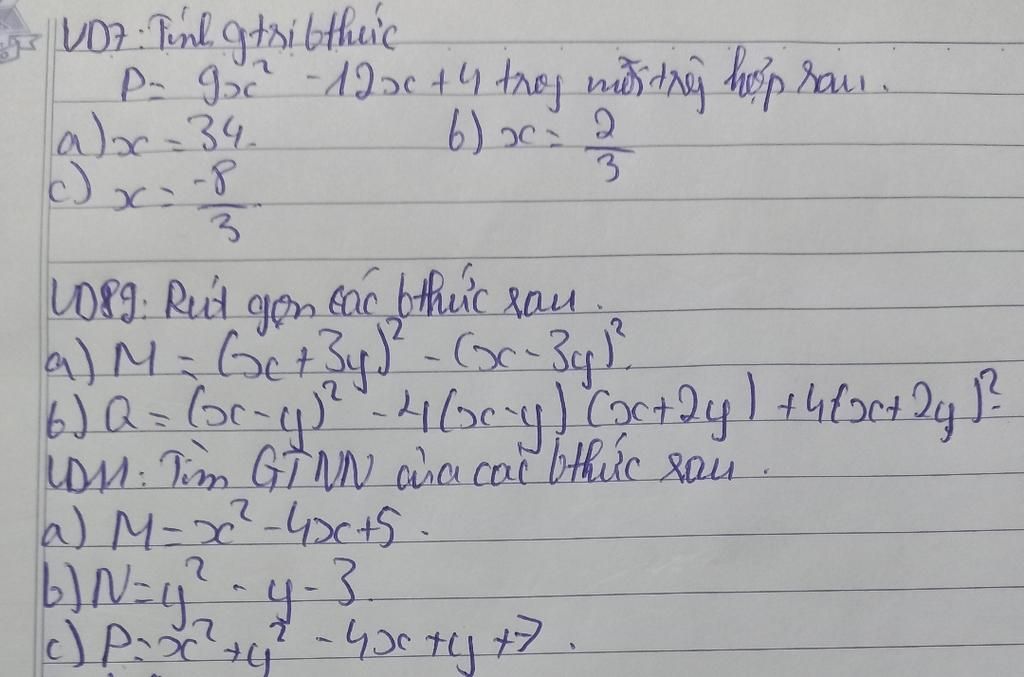 VD7: Tính gtrị bthức
P = 9x² - 12x + 4 trog mỗi trg hợp sau.
a) x = 34. b) x = 2/3
c) x = -8/3
VD89: Rút gọn các bthức sau.
a) M = (x + 3y)² - (x - 3y)².
b) Q = (x - y)² - 4(x - y)(x + 2y) + 4(x + 2y)².
VD11: Tìm GTNN của các bthức sau.
a) M = x² - 4x + 5.
b) N = y² - y - 3.
c) P = x² + y² - 4x + y + 7.